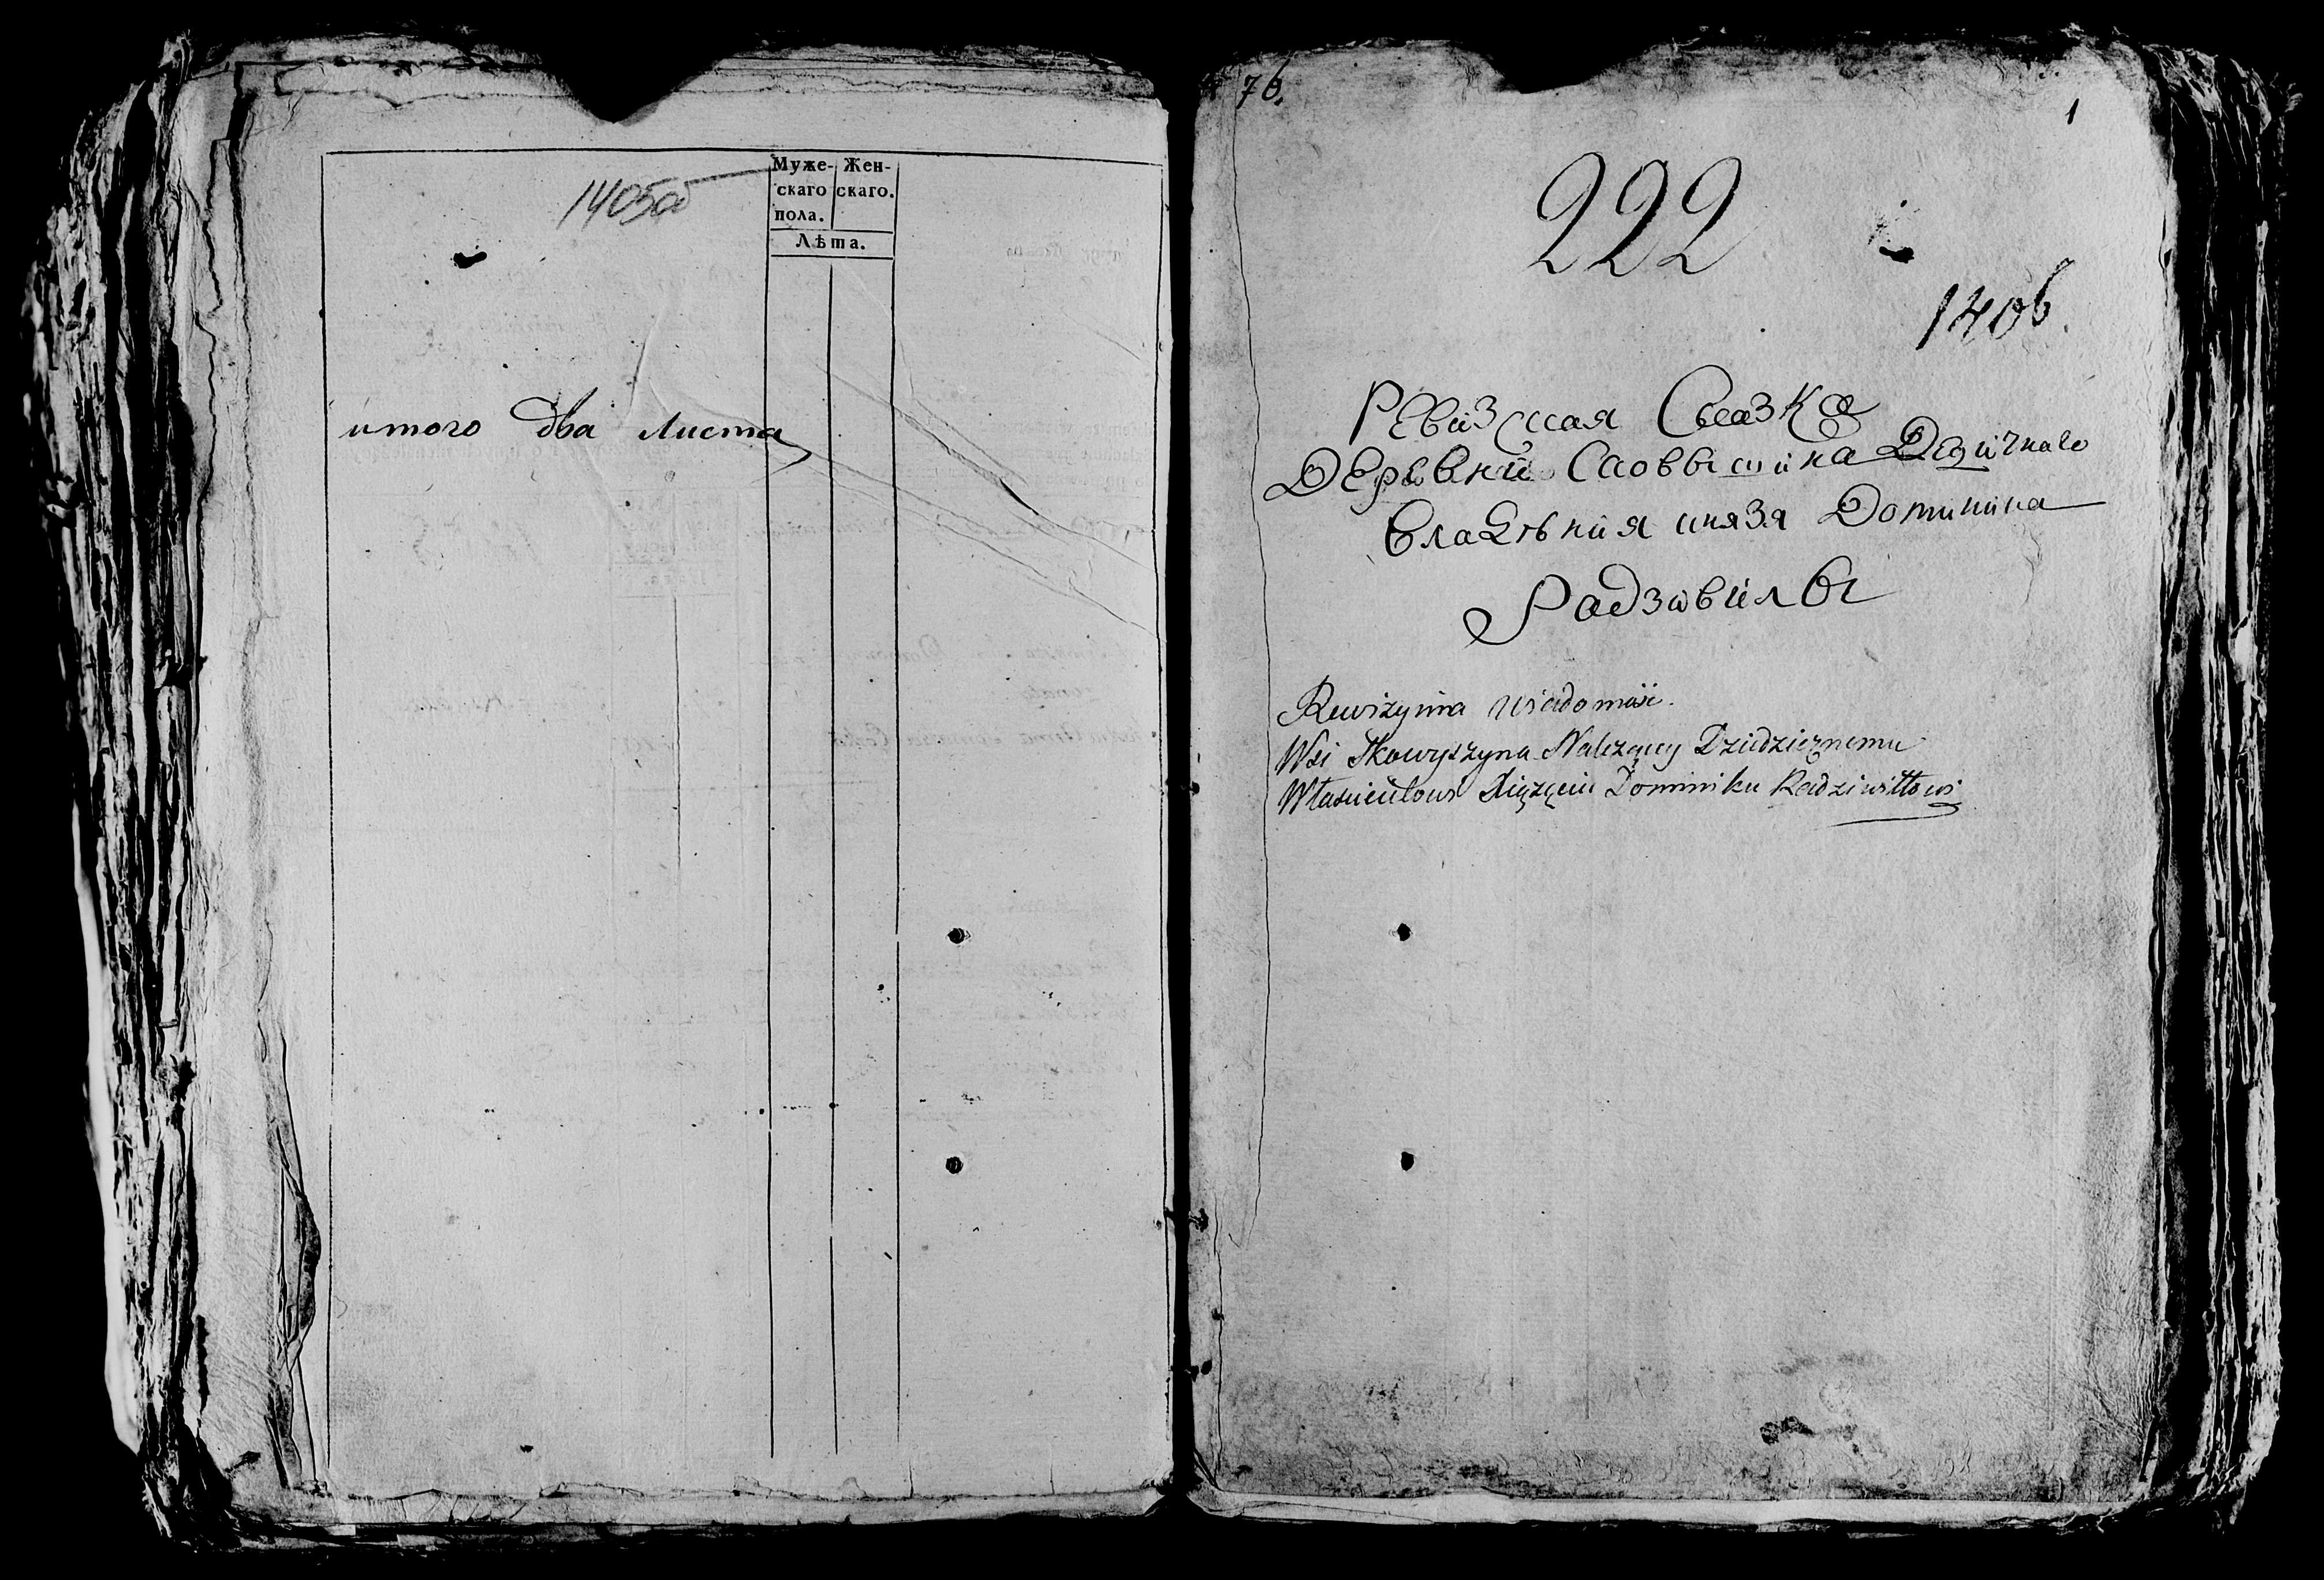 1405об
Муже- Жен-
скаго скаго.
пола.
Лѣта.
итого два листа
76.
1
222
1406.
Ревизская Сказка
Деревни Сковышина Дедичнаго
Владѣния князя Доминика
Радзивилы
Rewizyina Wiadomość.
Wsi Skowyszyna Należącey Dziedzicznemu
Właścicielowi Xiążęciu Dominiku Radziwiłłowi